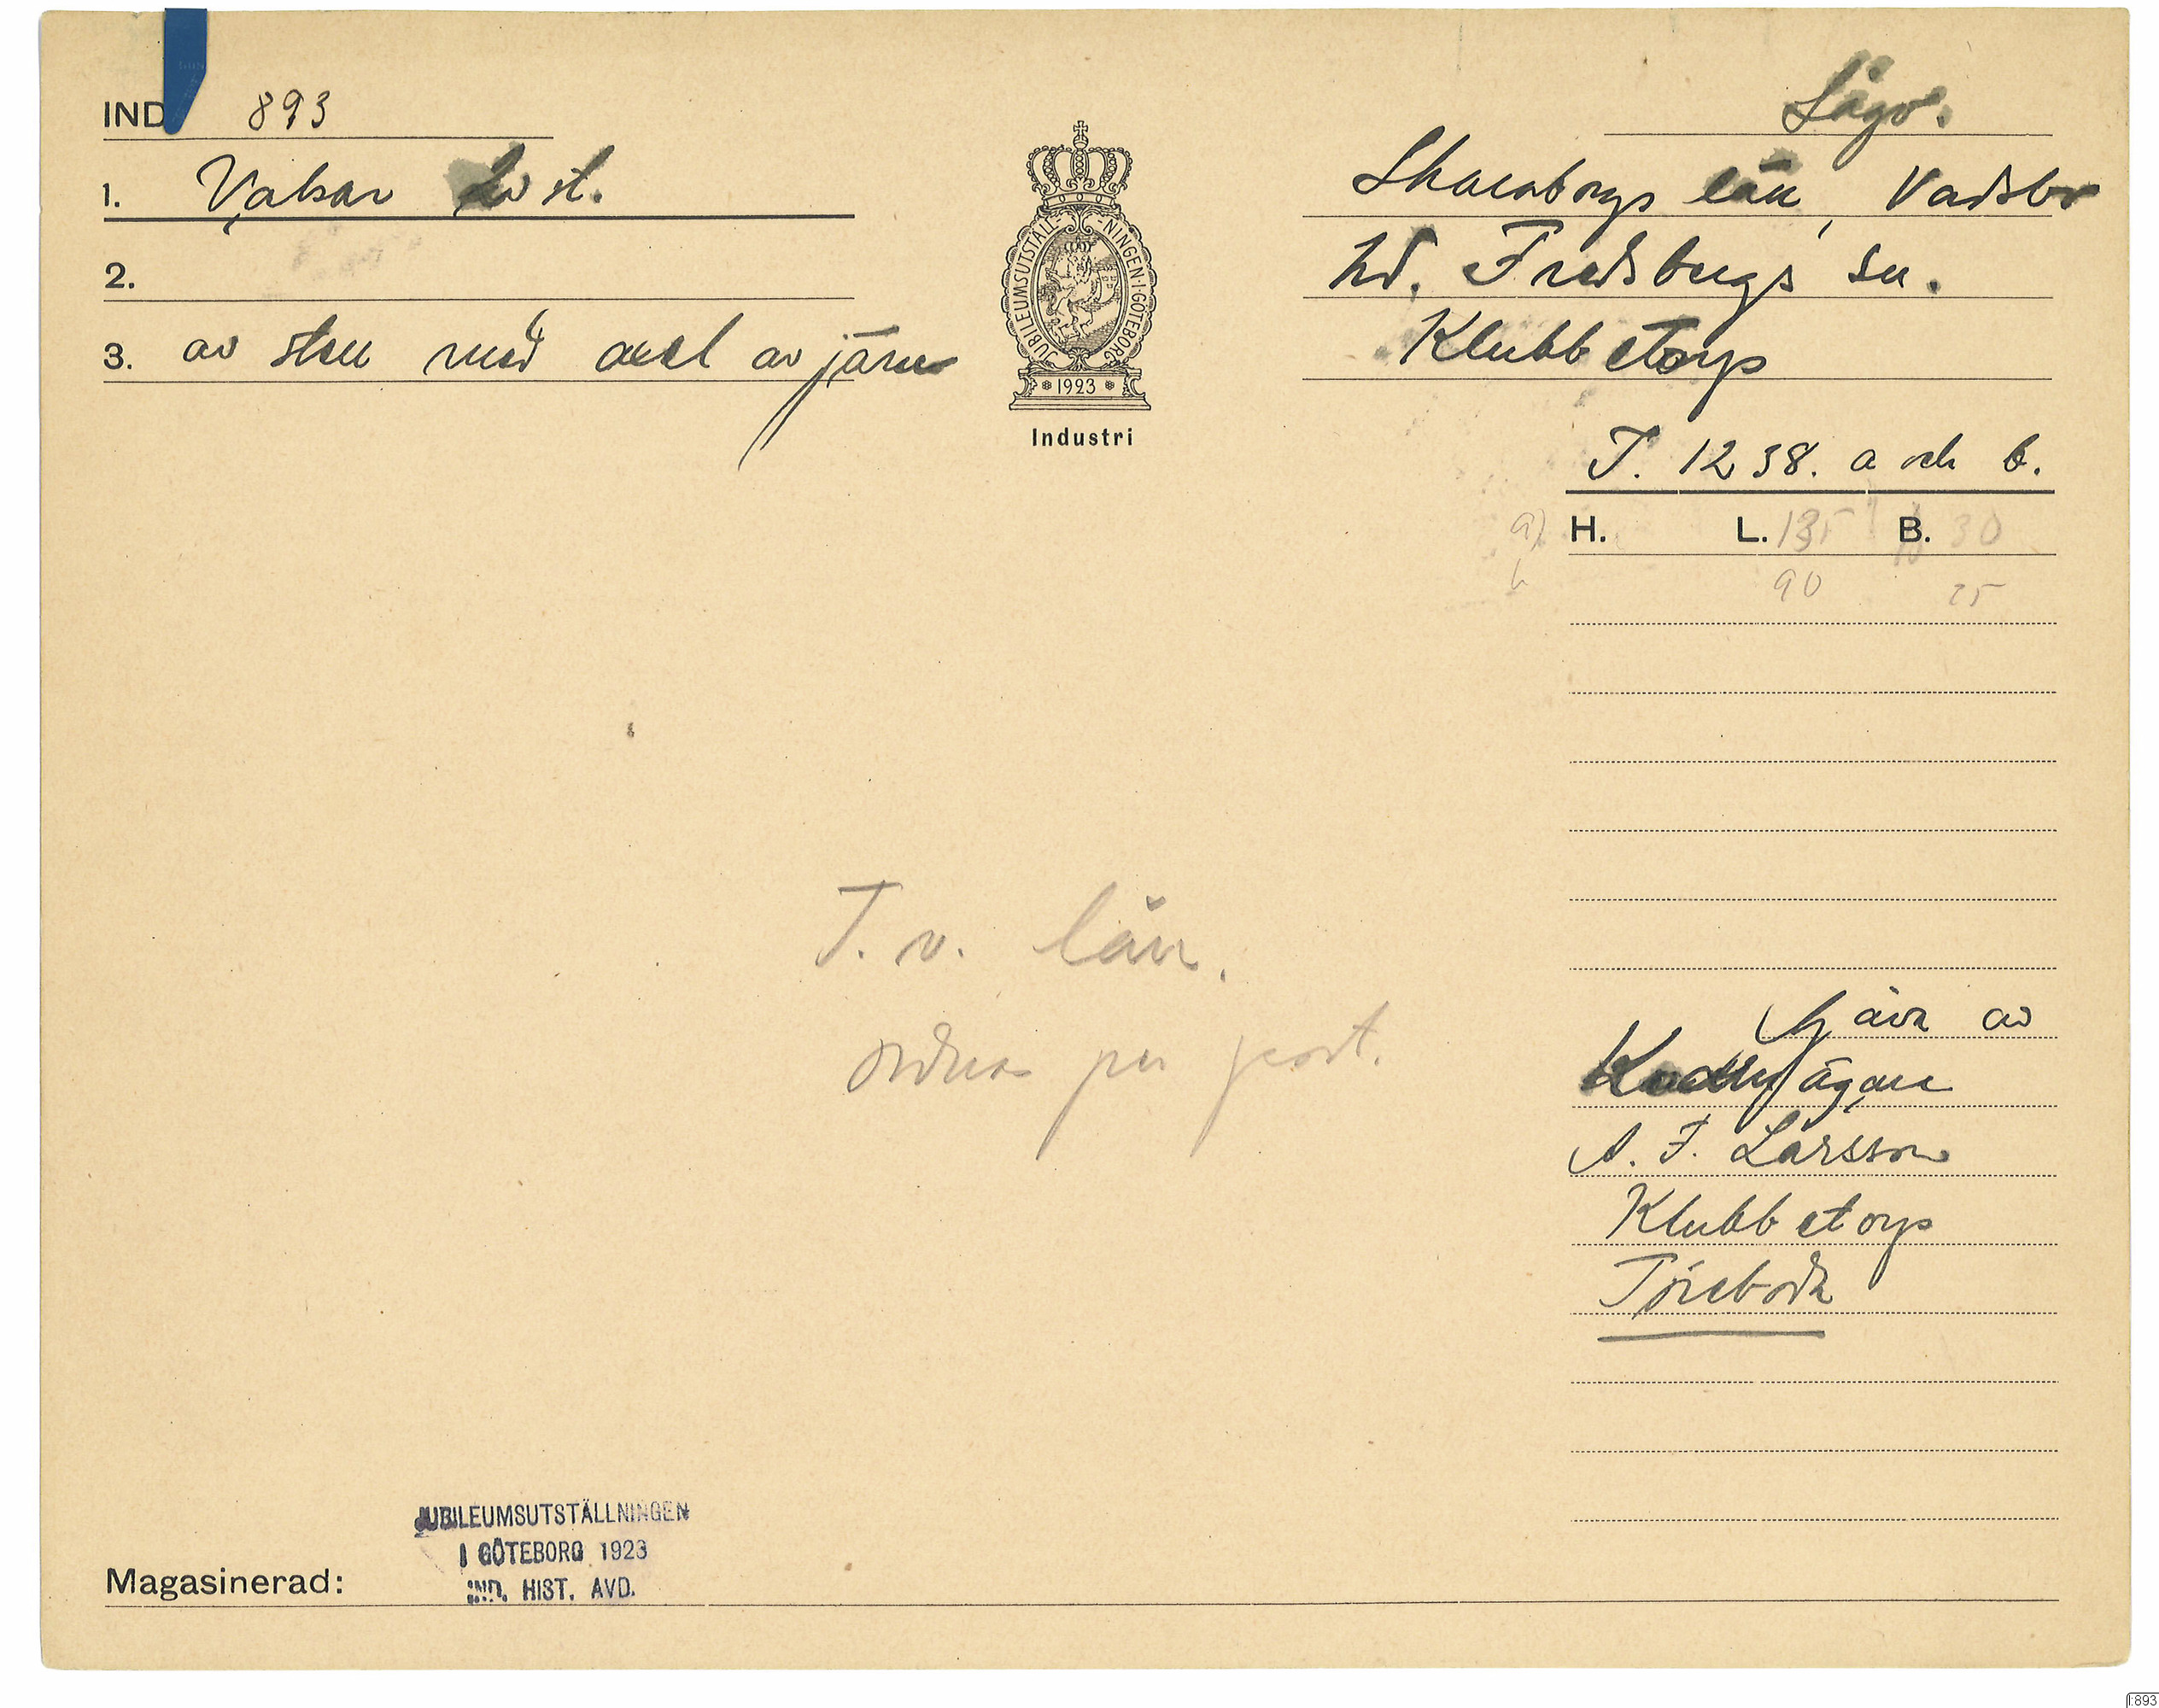 IND 893
1. Valsar 2 st.
2.
3. av sten med axel av järn
JUBILEUMSUTSTÄLLNINGEN I GÖTEBORG
1923
Industri
Skaraborgs län, Vadsbo
hd. Fredsbergs sn.
Klubbetorp
T. 1238. a och b.
a) H. L. 135 B. 30
b 90 25
T. v. lån.
ordnas per post.
Gåva av
ägare
A. F. Larsson
Klubbetorp
Töreboda
JUBILEUMSUTSTÄLLNINGEN
I GÖTEBORG 1923
IND. HIST. AVD.
Magasinerad:
I:893